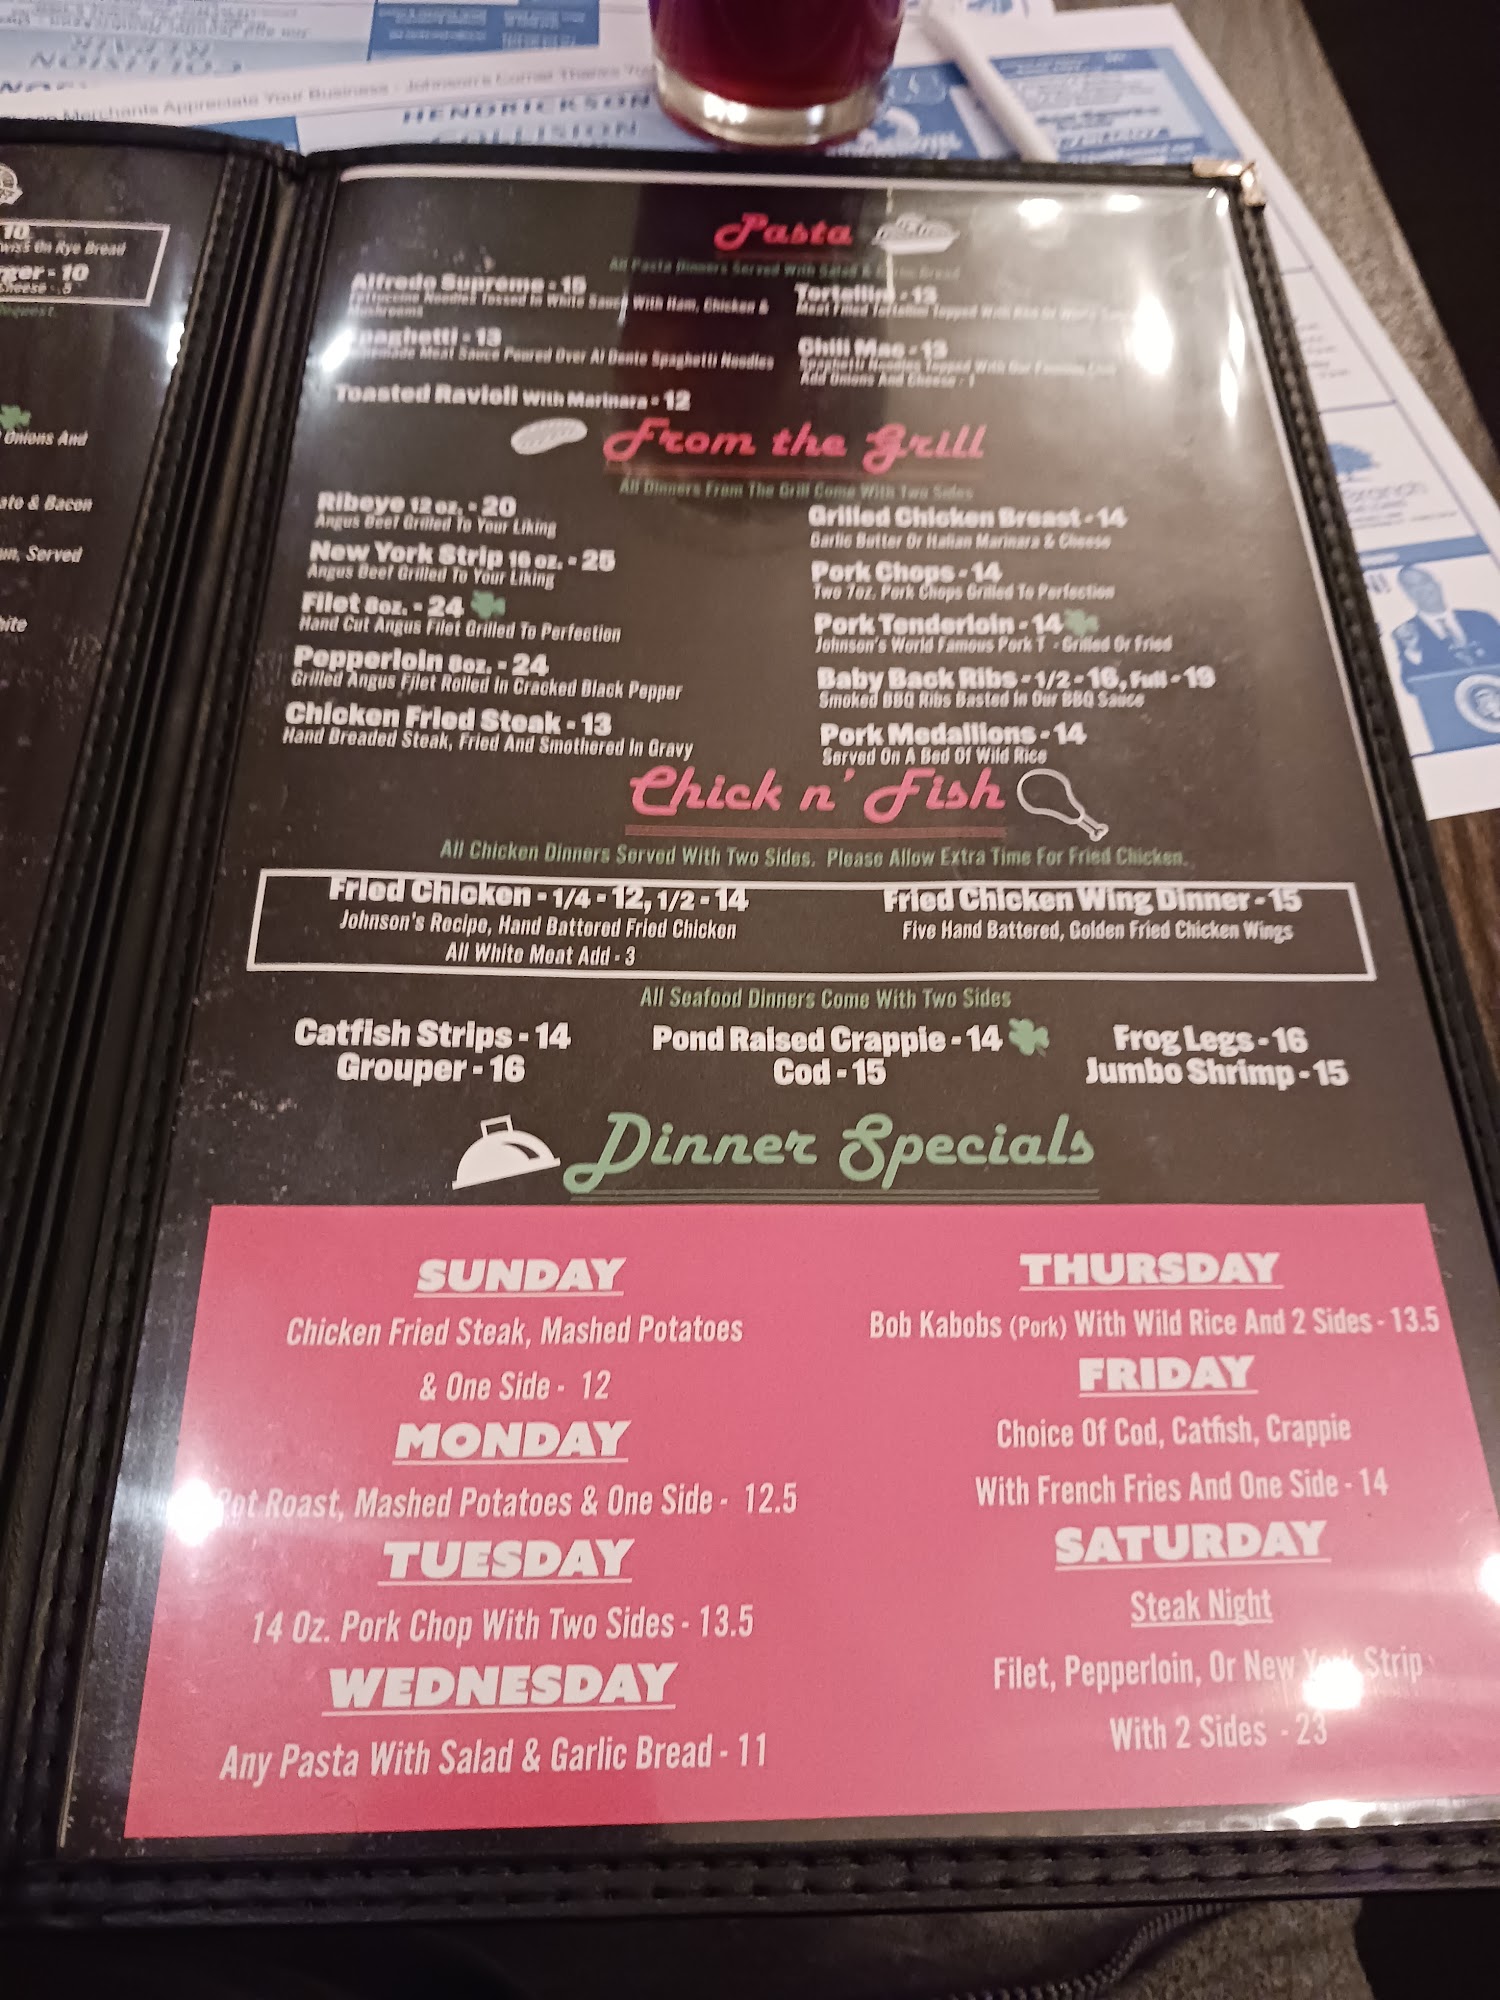 COLLISION
REPAIR
Merchants Appreciate Your Business - Johnson's Corner Thanks You
HENDRICKSON
COLLISION
10
Swiss On Rye Bread
rger - 10
Cheese - .5
request.
Onions And
ato & Bacon
wn, Served
hite
Pasta
All Pasta Dinners Served With Salad & Garlic Bread
Alfredo Supreme - 15
Fettuccine Noodles Tossed In White Sauce With Ham, Chicken &
Mushrooms
Spaghetti - 13
Homemade Meat Sauce Poured Over Al Dente Spaghetti Noodles
Toasted Ravioli With Marinara - 12
Tortellini - 13
Meat Filled Tortellini Topped With Red Or White Sauce
Chili Mac - 13
Spaghetti Noodles Topped With Our Famous Chili
Add Onions And Cheese - 1
From the Grill
All Dinners From The Grill Come With Two Sides
Ribeye 12 oz. - 20
Angus Beef Grilled To Your Liking
New York Strip 16 oz. - 25
Angus Beef Grilled To Your Liking
Filet 8oz. - 24
Hand Cut Angus Filet Grilled To Perfection
Pepperloin 8oz. - 24
Grilled Angus Filet Rolled In Cracked Black Pepper
Chicken Fried Steak - 13
Hand Breaded Steak, Fried And Smothered In Gravy
Grilled Chicken Breast - 14
Garlic Butter Or Italian Marinara & Cheese
Pork Chops - 14
Two 7oz. Pork Chops Grilled To Perfection
Pork Tenderloin - 14
Johnson's World Famous Pork T - Grilled Or Fried
Baby Back Ribs - 1/2 - 16, Full - 19
Smoked BBQ Ribs Basted In Our BBQ Sauce
Pork Medallions - 14
Served On A Bed Of Wild Rice
Chick n' Fish
All Chicken Dinners Served With Two Sides. Please Allow Extra Time For Fried Chicken.
Fried Chicken - 1/4 - 12, 1/2 - 14
Johnson's Recipe, Hand Battered Fried Chicken
All White Meat Add - 3
Fried Chicken Wing Dinner - 15
Five Hand Battered, Golden Fried Chicken Wings
All Seafood Dinners Come With Two Sides
Catfish Strips - 14
Grouper - 16
Pond Raised Crappie - 14
Cod - 15
Frog Legs - 16
Jumbo Shrimp - 15
Dinner Specials
SUNDAY
Chicken Fried Steak, Mashed Potatoes
& One Side - 12
MONDAY
Pot Roast, Mashed Potatoes & One Side - 12.5
TUESDAY
14 Oz. Pork Chop With Two Sides - 13.5
WEDNESDAY
Any Pasta With Salad & Garlic Bread - 11
THURSDAY
Bob Kabobs (Pork) With Wild Rice And 2 Sides - 13.5
FRIDAY
Choice Of Cod, Catfish, Crappie
With French Fries And One Side - 14
SATURDAY
Steak Night
Filet, Pepperloin, Or New York Strip
With 2 Sides - 23